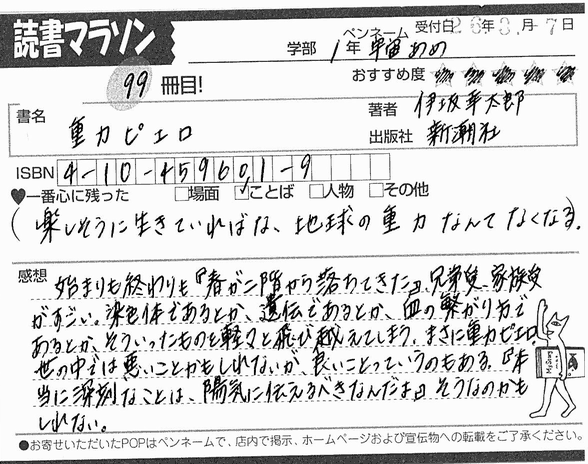 読書マラソン
学部 1年 ペンネーム 宇宙あめ 受付日26年3月-7日
99冊目!
おすすめ度 ★★★★★
書名 重力ピエロ
著者 伊坂幸太郎
出版社 新潮社
ISBN 4-10-459601-9
♥一番心に残った □場面 ☑ことば □人物 □その他
(楽しそうに生きていればな、地球の重力なんてなくなる。
感想
始まりも終わりも『春が二階から落ちてきた』。兄弟愛、家族愛
がすごい。染色体であるとか、遺伝であるとか、血の繋がり方で
あるとか、そういったものを軽々と飛び越えてしまう。まさに重力ピエロ。
世の中では悪いことかもしれないが、良いことっていうのもある。『本
当に深刻なことは、陽気に伝えるべきなんだよ』そうなのかも
しれない。
●お寄せいただいたPOPはペンネームで、店内で掲示、ホームページおよび宣伝物への転載をご了承ください。